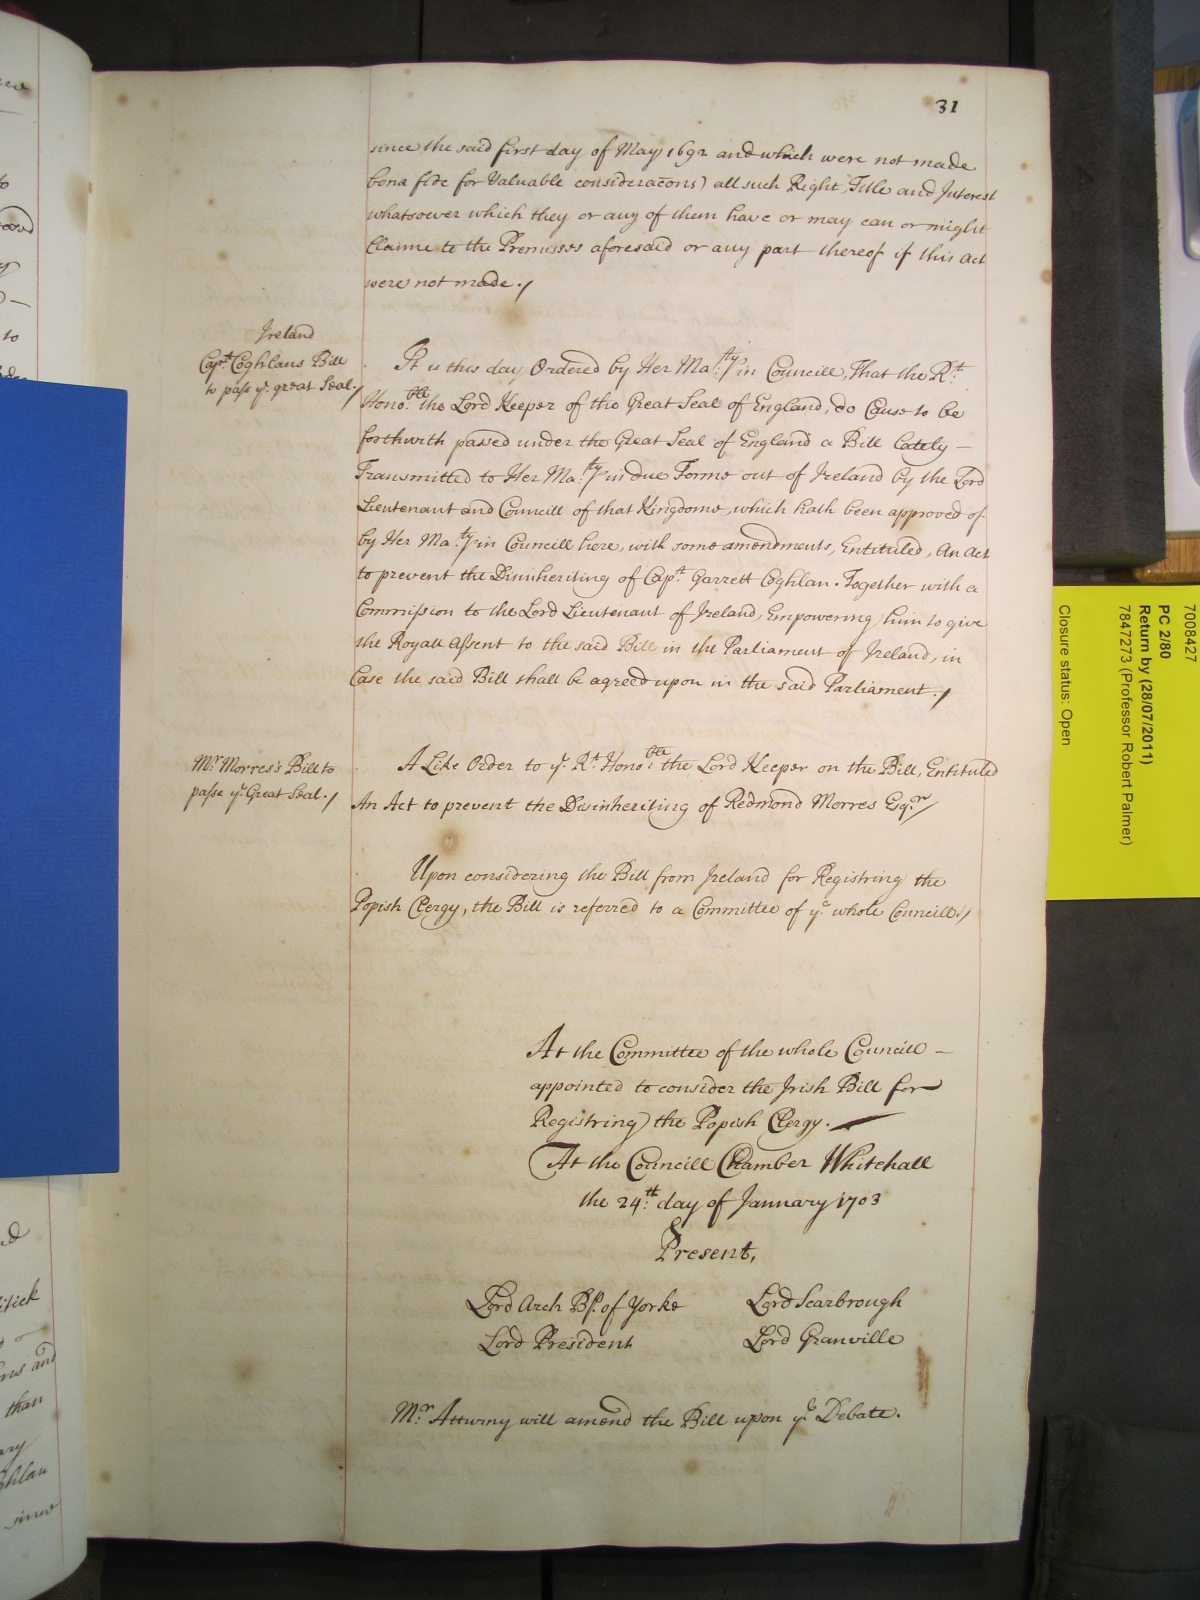 31
since the said first day of May 1692 and which were not made
bona fide for Valuable consideracōns) all such Right, Title and Interest
whatsoever which they or any of them have or may can or might
Claime to the Premisses aforesaid or any part thereof if this Act
were not made ./
Ireland
Capt. Coghlans Bill
to pass ye. great Seal./
It is this day Ordered by Her Ma:ty in Councill, That the Rt.
Hono:ble the Lord Keeper of the Great Seal of England, do Cause to be
forthwith passed under the Great Seal of England a Bill Lately –
Transmitted to Her Ma:ty in due Forme out of Ireland by the Lord
Lieutenant and Councill of that Kingdome, which hath been approved of
by Her Ma:ty in Councill here, with some amendments, Entituled, An Act
to prevent the Disinheriting of Capt. Garrett Coghlan. Together with a
Commission to the Lord Lieutenant of Ireland, Empowering him to give
the Royall Assent to the said Bill in the Parliament of Ireland, in
Case the said Bill shall be agreed upon in the said Parliament ./
Mr. Morres's Bill to
passe ye. Great Seal./
A Like Order to ye. Rt. Hono:ble the Lord Keeper on the Bill, Entituled
An Act to prevent the Disinheriting of Redmond Morres Esqr./
Upon considering the Bill from Ireland for Registring the
Popish Clergy, the Bill is referred to a Committee of ye. whole Councill./
At the Committee of the whole Councill –
appointed to consider the Irish Bill for
Registring the Popish Clergy. —
At the Councill Chamber Whitehall
the 24:th day of January 1703
Present,
Lord Arch Bp. of Yorke
Lord Scarbrough
Lord President
Lord Granville
Mr. Atturny will amend the Bill upon ye. Debate.
7008427
PC 2/80
Return by (28/07/2011)
7847273 (Professor Robert Palmer)
Closure status: Open